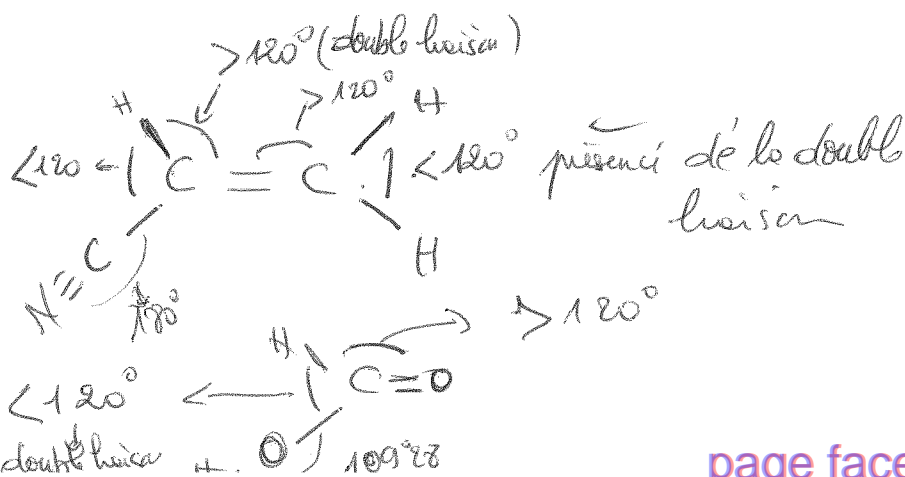 >120° (double liaison)
>120°
H H
<120 C = C <120° présence de la double
liaison
C H
N≡ 180°
>120°
H
C=O
<120°
double liaison H O 109°28
page face